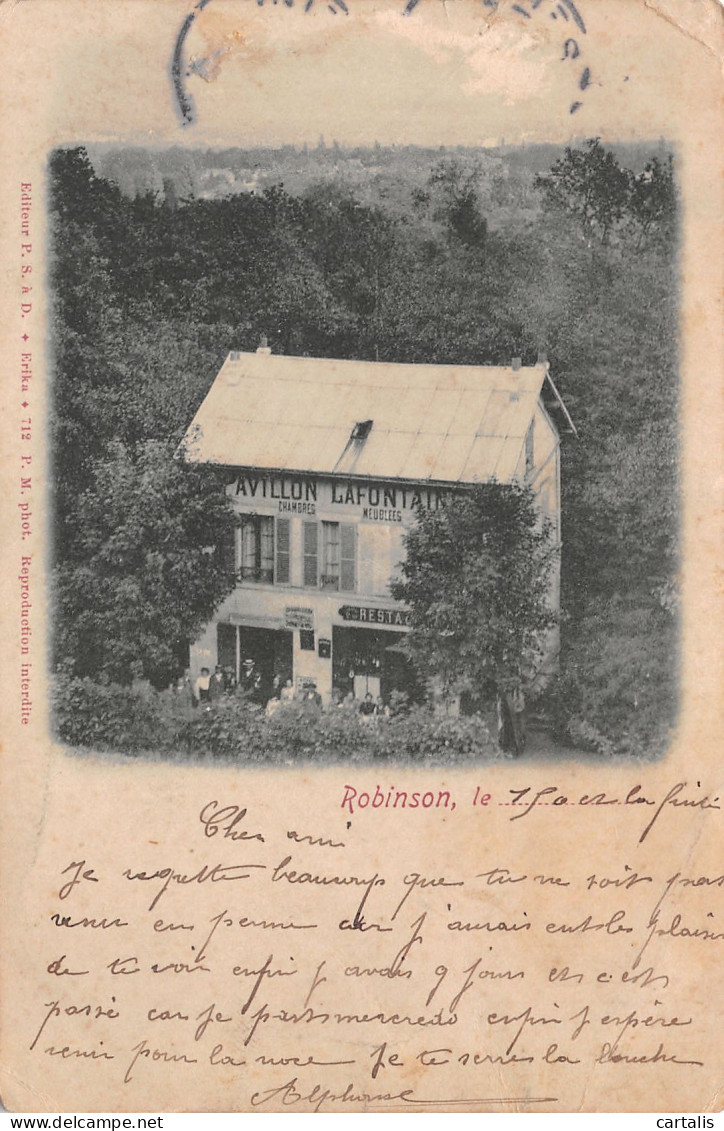 Editeur P. S. à D. ✦ Erika ✦ 712 P. M. phot. Reproduction interdite
PAVILLON LAFONTAINE
CHAMBRES MEUBLÉES
RESTA
Robinson, le 15
Cher ami
Je regrette beaucoup que tu ne soit pas
venu en perme car j'aurais eut le plaisir
de te voir enfin j'avais 9 jours et c'est
passé car je parts mercredo enfin j'espère
venir pour la noce Je te serre la louche
Alphonse
cartalis
www.delcampe.net